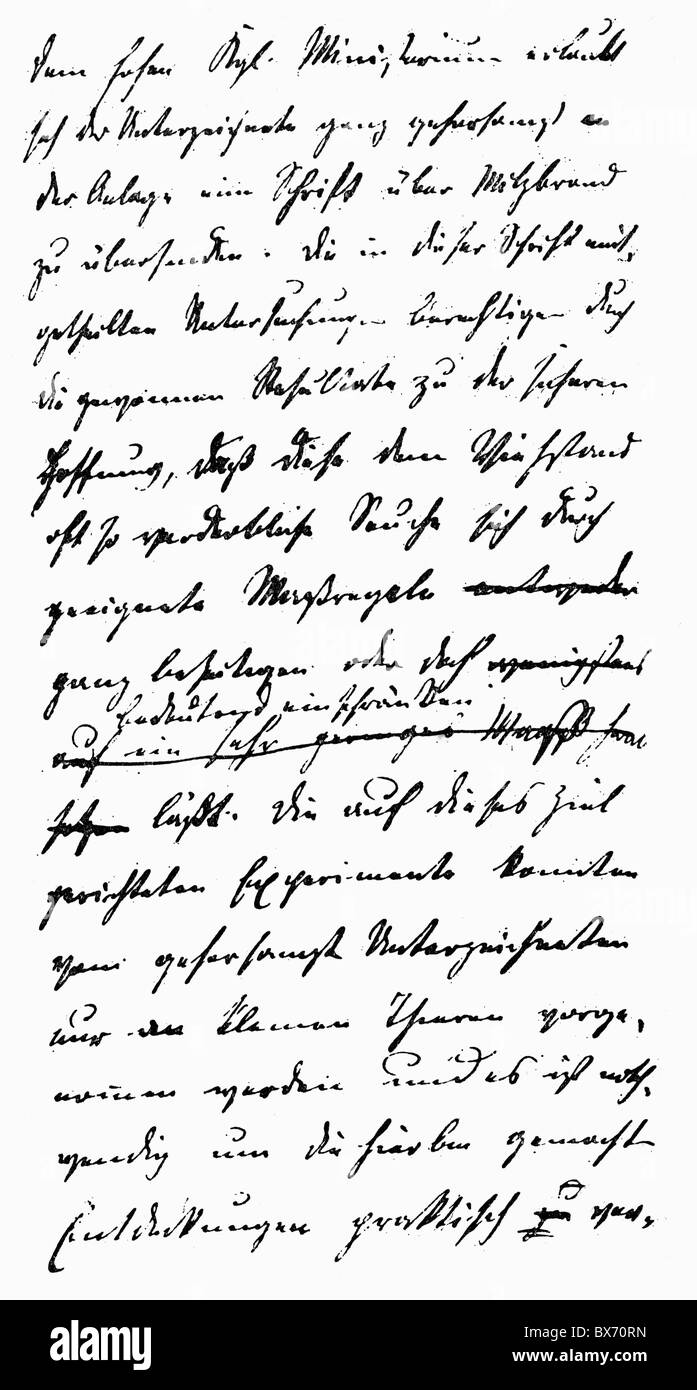 Dem hohen Kgl. Ministerium erlaubt
sich der Unterzeichnete ganz gehorsamst in
der Anlage eine Schrift über Milzbrand
zu übersenden. Die in dieser Schrift mit-
getheilten Untersuchungen berechtigen durch
die gewonnenen Resultate zu der sicheren
Hoffnung, daß diese dem Viehstand
oft so verderbliche Seuche sich durch
geeignete Maßregeln entweder
ganz beseitigen oder doch wenigstens
bedeutend einschränken
auf ein sehr geringes Maaß
setzen läßt. Die auf dieses Ziel
gerichteten Experimente konnten
vom gehorsamst Unterzeichneten
nur an kleinen Thieren vorge-
nommen werden und es ist noth-
wendig um die hierbei gemachten
Entdeckungen praktisch zu ver-
alamy
Image ID: BX70RN
www.alamy.com